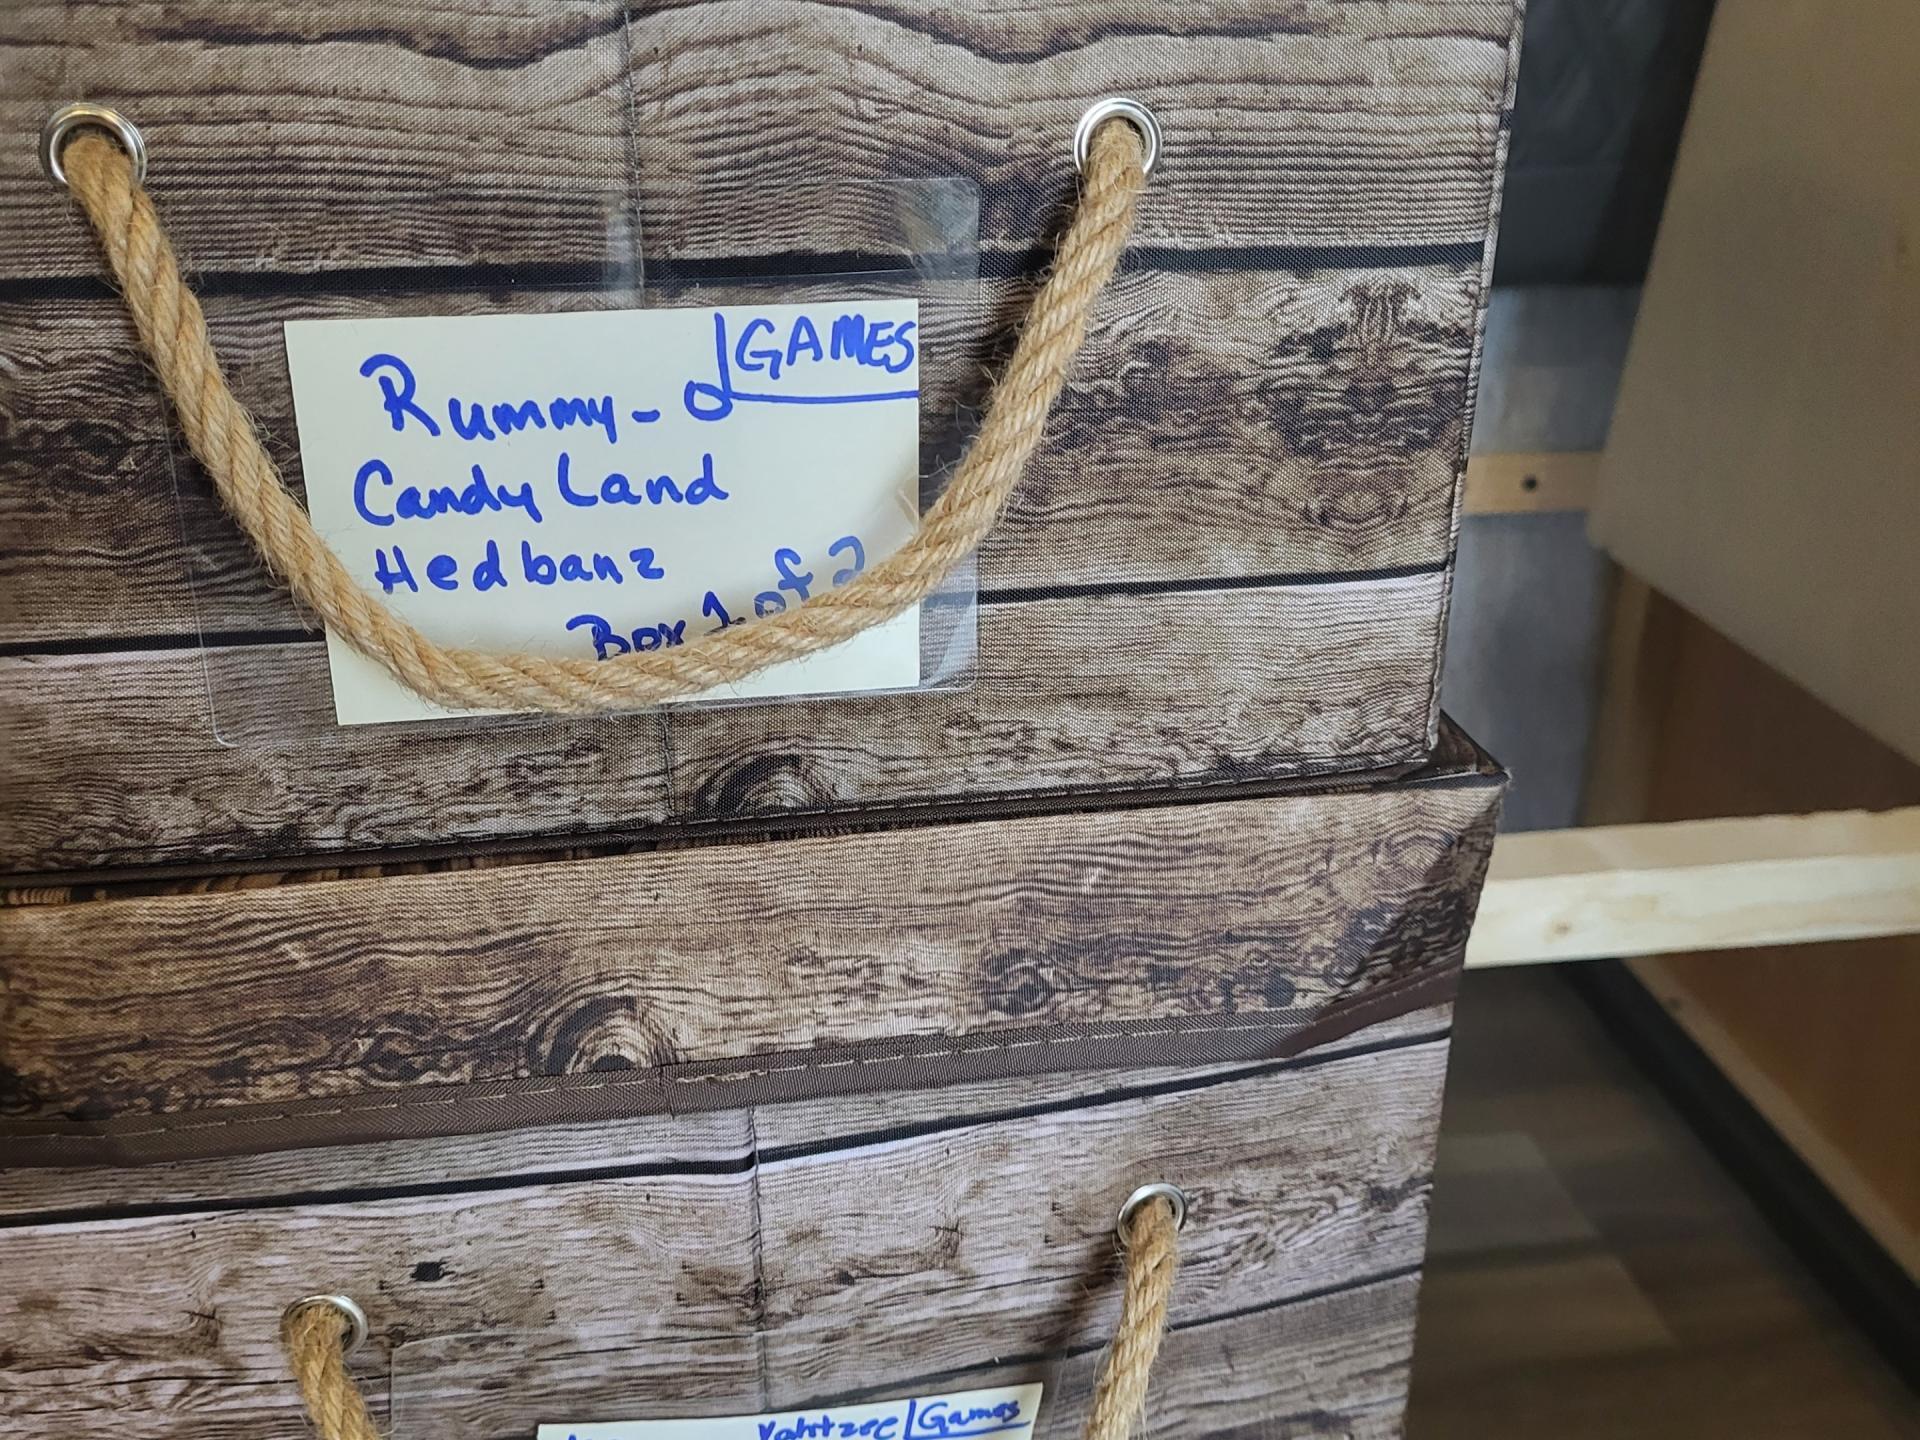 GAMES
Rummy-O
Candy Land
Hedbanz
Box 1 of 2
Yahtzee
Games